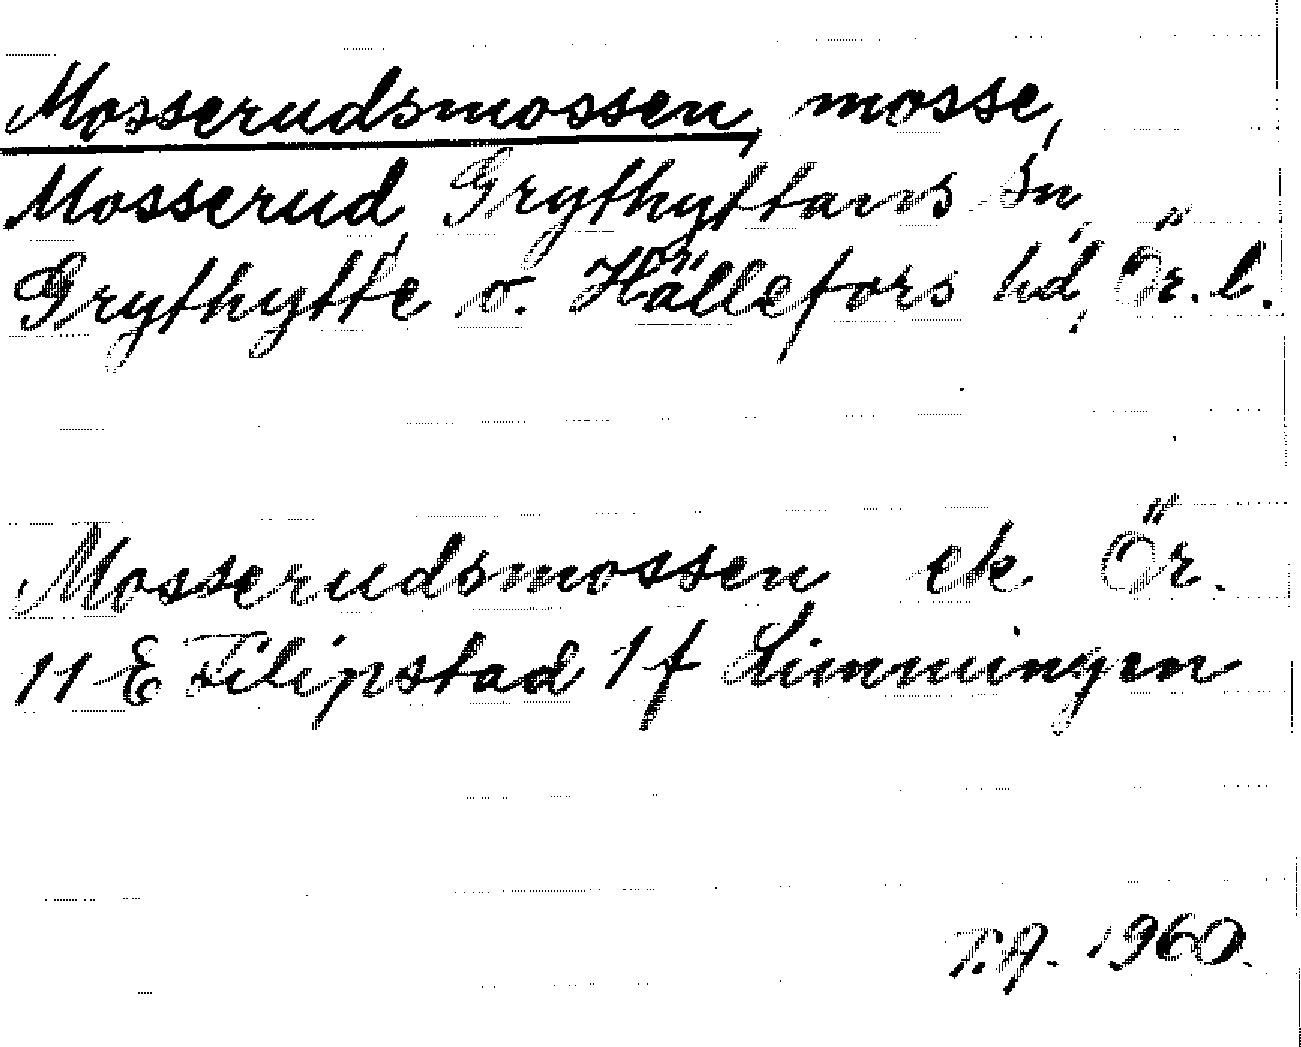 Mosserudsmossen, mosse,
Mosserud, Grythyttans sn,
Grythytte o. Hällefors hd, Ör. l.
Mosserudsmossen ek Ör.
11 E Filipstad 1 f Limmingen
T.A. 1960.